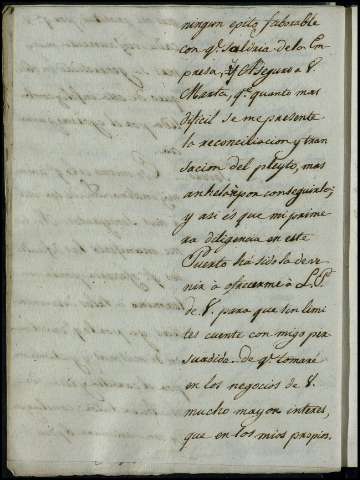 ningun exito faborable
con q.e saldria de la Em
presa, y Aseguro a V.
Marta, q.e quanto mas
dificil se me presente
la reconciliacion y tran
sacion del pleyto, mas
anhelo por conseguirlo;
y asi es que mi prime
ra diligencia en este
Puerto há sido la de ve
nir à ofrecerme à L. P.
de V. para que sin limi
tes cuente con migo per
suadida de q.e tomaré
en los negocios de V.
mucho mayor interes,
que en los mios propios.